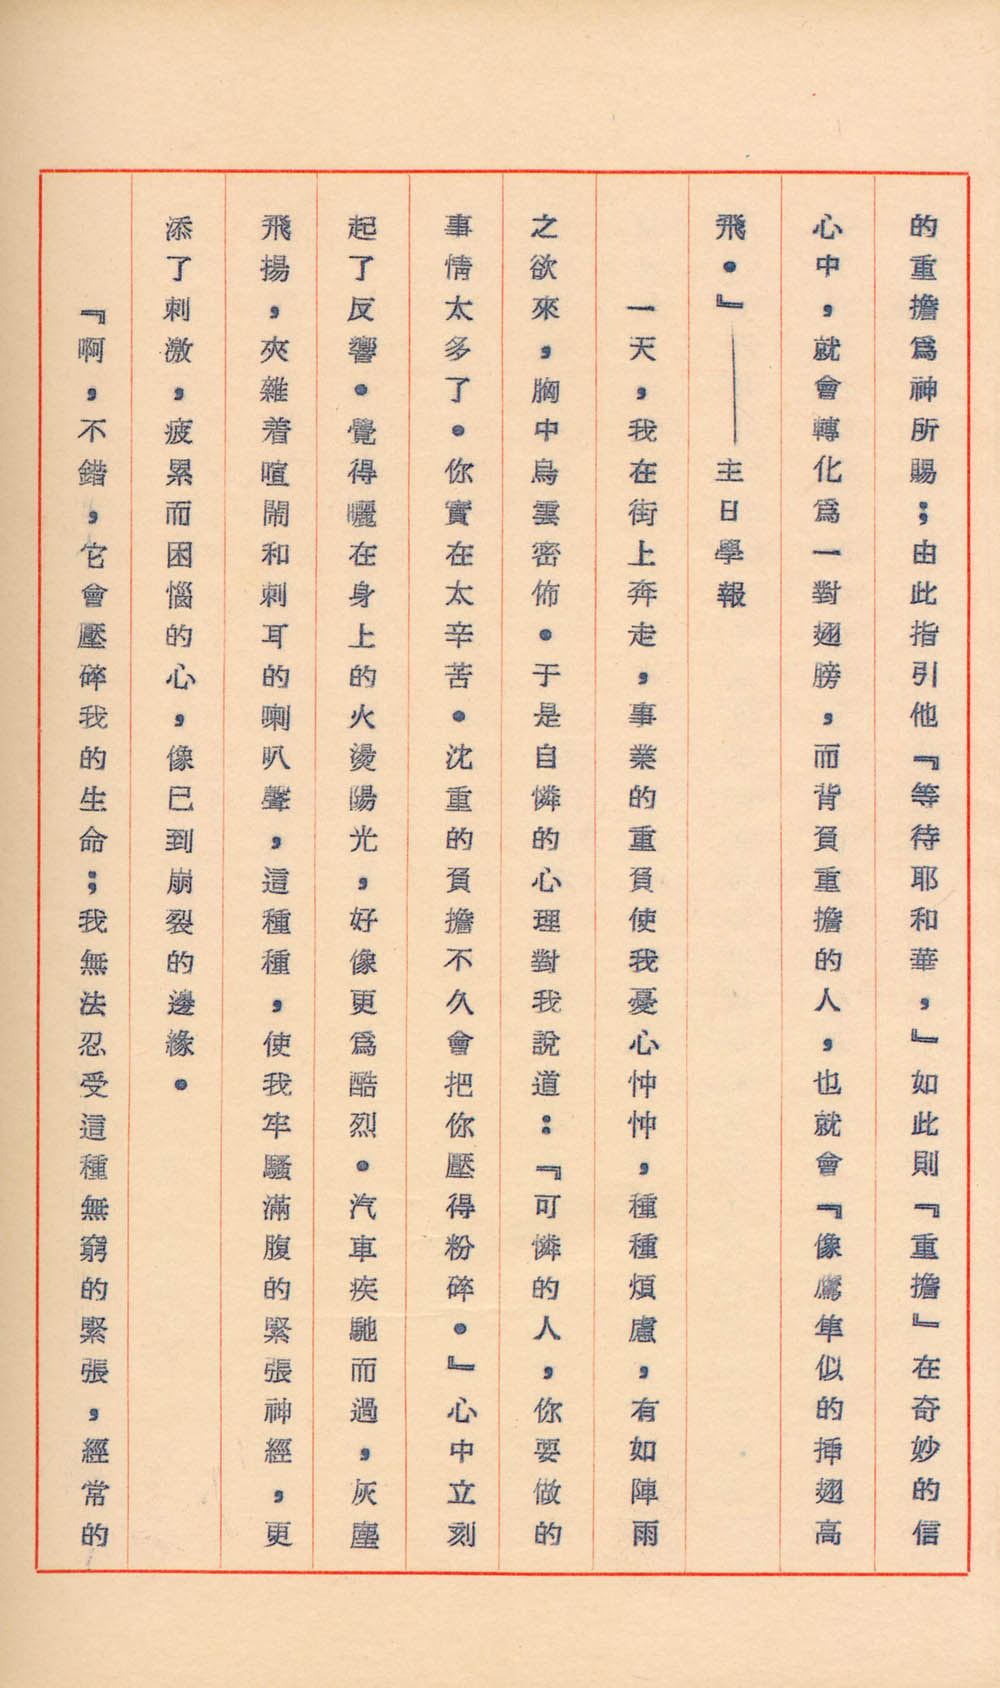 的重擔爲神所賜；由此指引他『等待耶和華，』如此則『重擔』在奇妙的信
心中，就會轉化爲一對翅膀，而背負重擔的人，也就會『像鷹隼似的揷翅高
飛。』————主日學報
一天，我在街上奔走，事業的重負使我憂心忡忡，種種煩慮，有如陣雨
之欲來，胸中烏雲密佈。于是自憐的心理對我說道：『可憐的人，你要做的
事情太多了。你實在太辛苦。沈重的負擔不久會把你壓得粉碎。』心中立刻
起了反響。覺得曬在身上的火燙陽光，好像更爲酷烈。汽車疾馳而過，灰塵
飛揚，夾雜着喧鬧和刺耳的喇叭聲，這種種，使我牢騷滿腹的緊張神經，更
添了刺激，疲累而困惱的心，像已到崩裂的邊緣。
『啊，不錯，它會壓碎我的生命；我無法忍受這種無窮的緊張，經常的